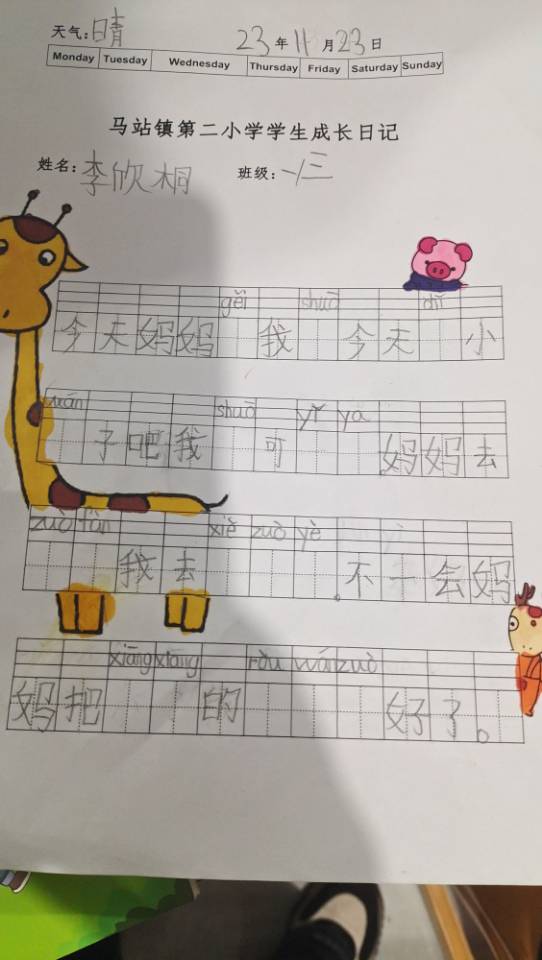 天气：晴 23年11月23日
Monday Tuesday Wednesday Thursday Friday Saturday Sunday
马站镇第二小学学生成长日记
姓名：李欣桐 班级：一/三
gěi shuō dī
今天妈妈 我 今天 小
shuō yǐ ya
子吧我 可 妈妈去
zuò fàn xiě zuò yè
我去 。不一会妈
xiāng xiāng ròu wán zuò
妈把 的 好了。